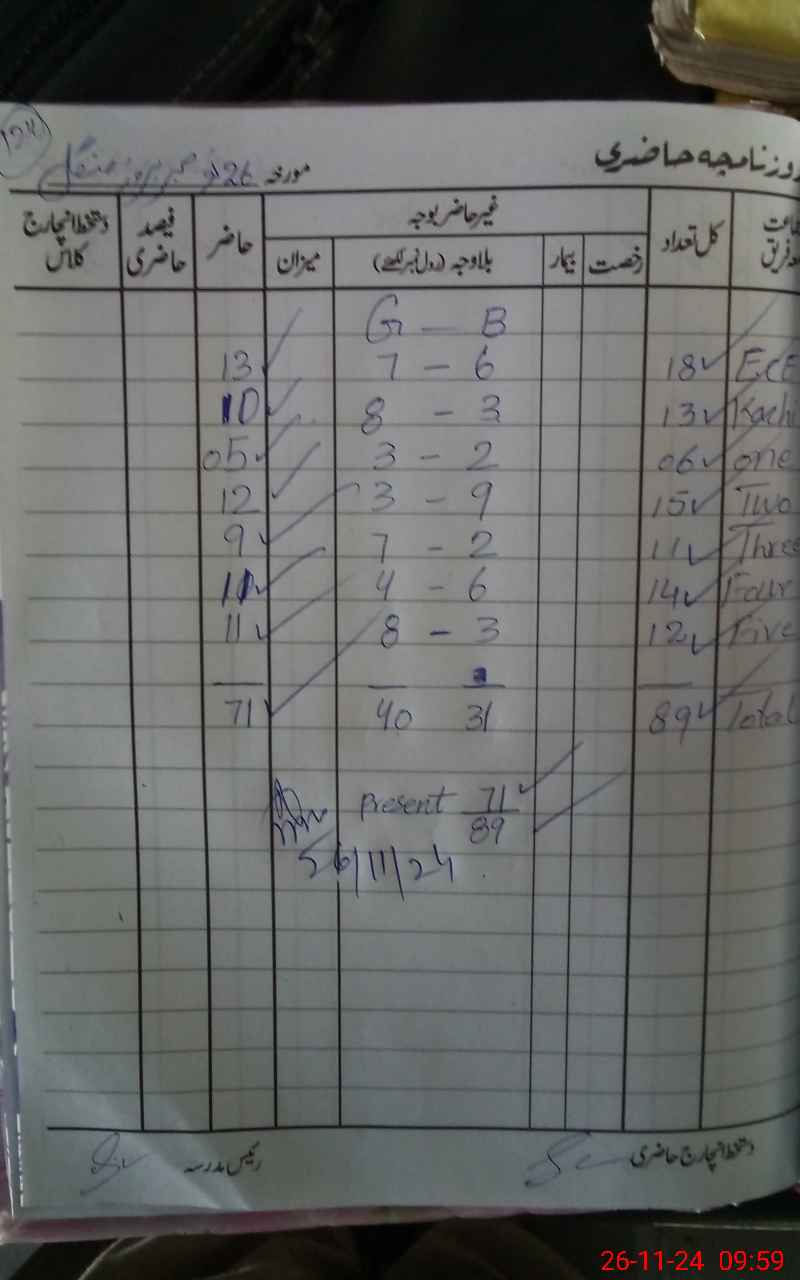 روزنامچہ حاضری
مورخہ 26 نومبر بروز منگل
جماعت بمعہ فریق کل تعداد غیر حاضر بوجہ حاضر فیصد حاضری دستخط انچارج کلاس
رخصت بیمار بلاوجہ (رول نمبر لکھیے) میزان
G — B
13 7 – 6 18 ECE
10 8 – 3 13 Kachi
05 3 – 2 06 one
12 3 – 9 15 Two
9 7 – 2 11 Three
11 4 – 6 14 Four
11 8 – 3 12 Five
71 40 31 89 Total
Present 71
89
26/11/24
دستخط انچارج حاضری رئیس مدرسہ
26-11-24 09:59